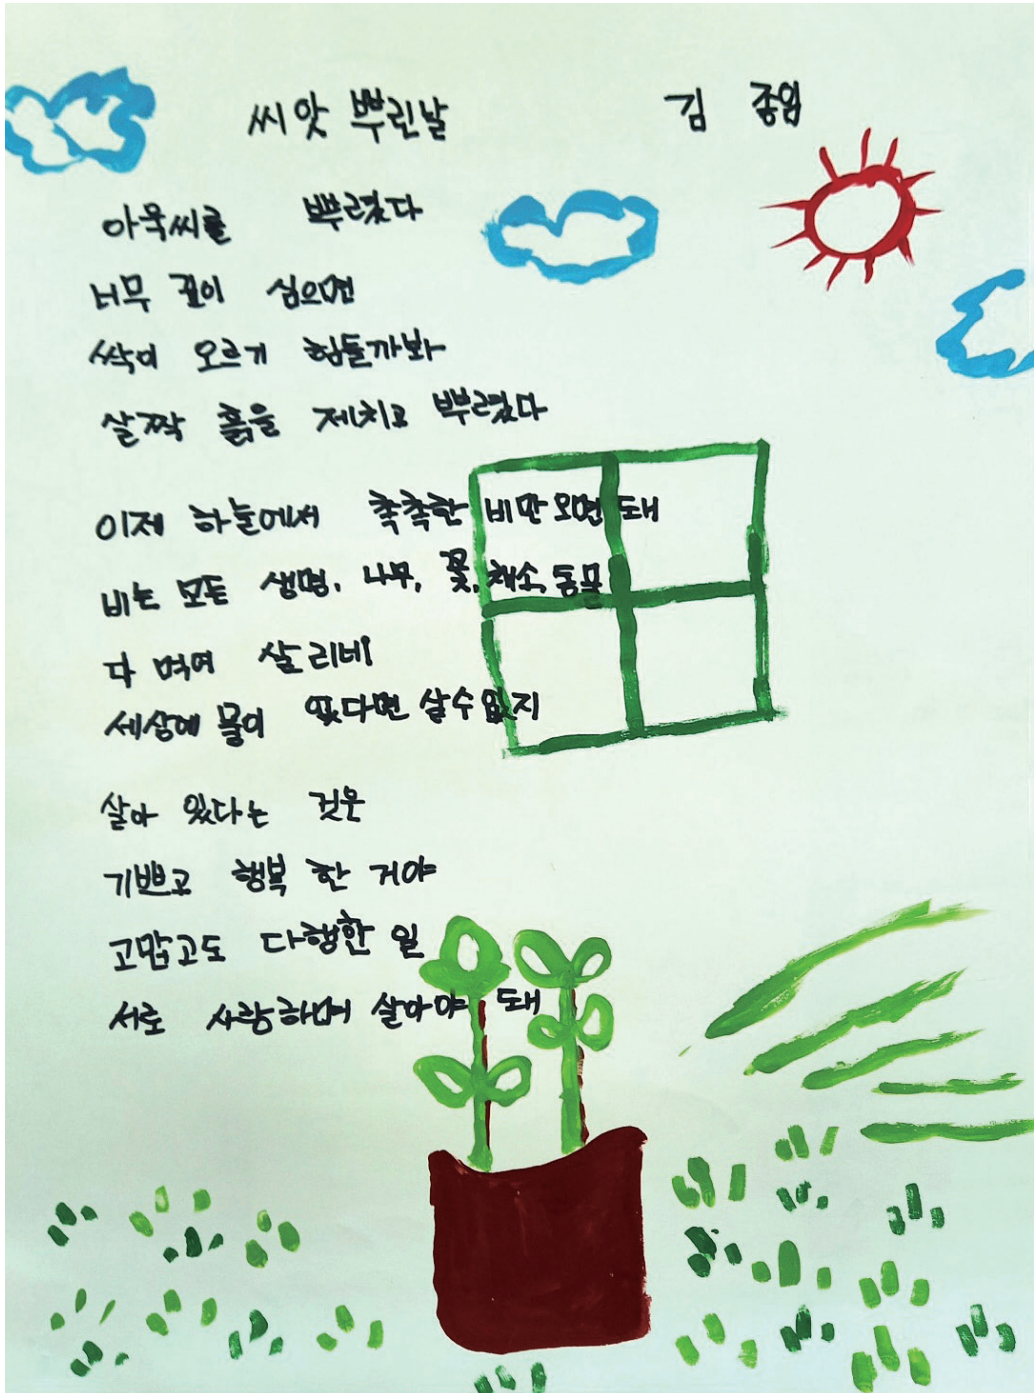 씨앗 뿌린날 김 종임
아욱씨를 뿌렸다
너무 깊이 심으면
싹이 오르기 힘들까봐
살짝 흙을 제치고 뿌렸다
이제 하늘에서 촉촉한 비만 오면 돼
비는 모든 생명, 나무, 꽃, 채소, 동물
다 먹여 살리네
세상에 물이 없다면 살수 없지
살아 있다는 것은
기쁘고 행복 한 거야
고맙고도 다행한 일
서로 사랑하며 살아야 돼